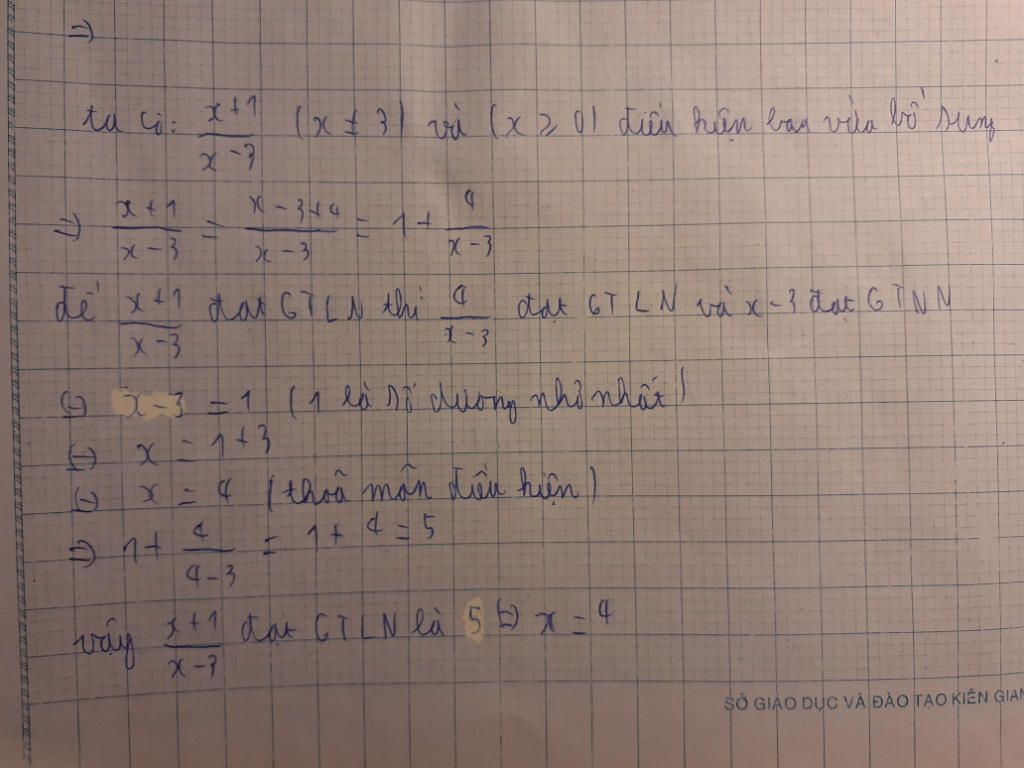 ⇒
ta có: x+1/x-3 (x ≠ 3) và (x ≥ 0) điều kiện bạn vừa bổ sung
⇒ x+1/x-3 = x-3+4/x-3 = 1 + 4/x-3
để x+1/x-3 đạt GTLN thì 4/x-3 đạt GTLN và x-3 đạt GTNN
⇔ x-3 = 1 (1 là số dương nhỏ nhất)
⇔ x = 1+3
⇔ x = 4 (thoã mãn điều kiện)
⇒ 1 + 4/4-3 = 1 + 4 = 5
vậy x+1/x-3 đạt GTLN là 5 ⇔ x = 4
SỞ GIÁO DỤC VÀ ĐÀO TẠO KIÊN GIAN